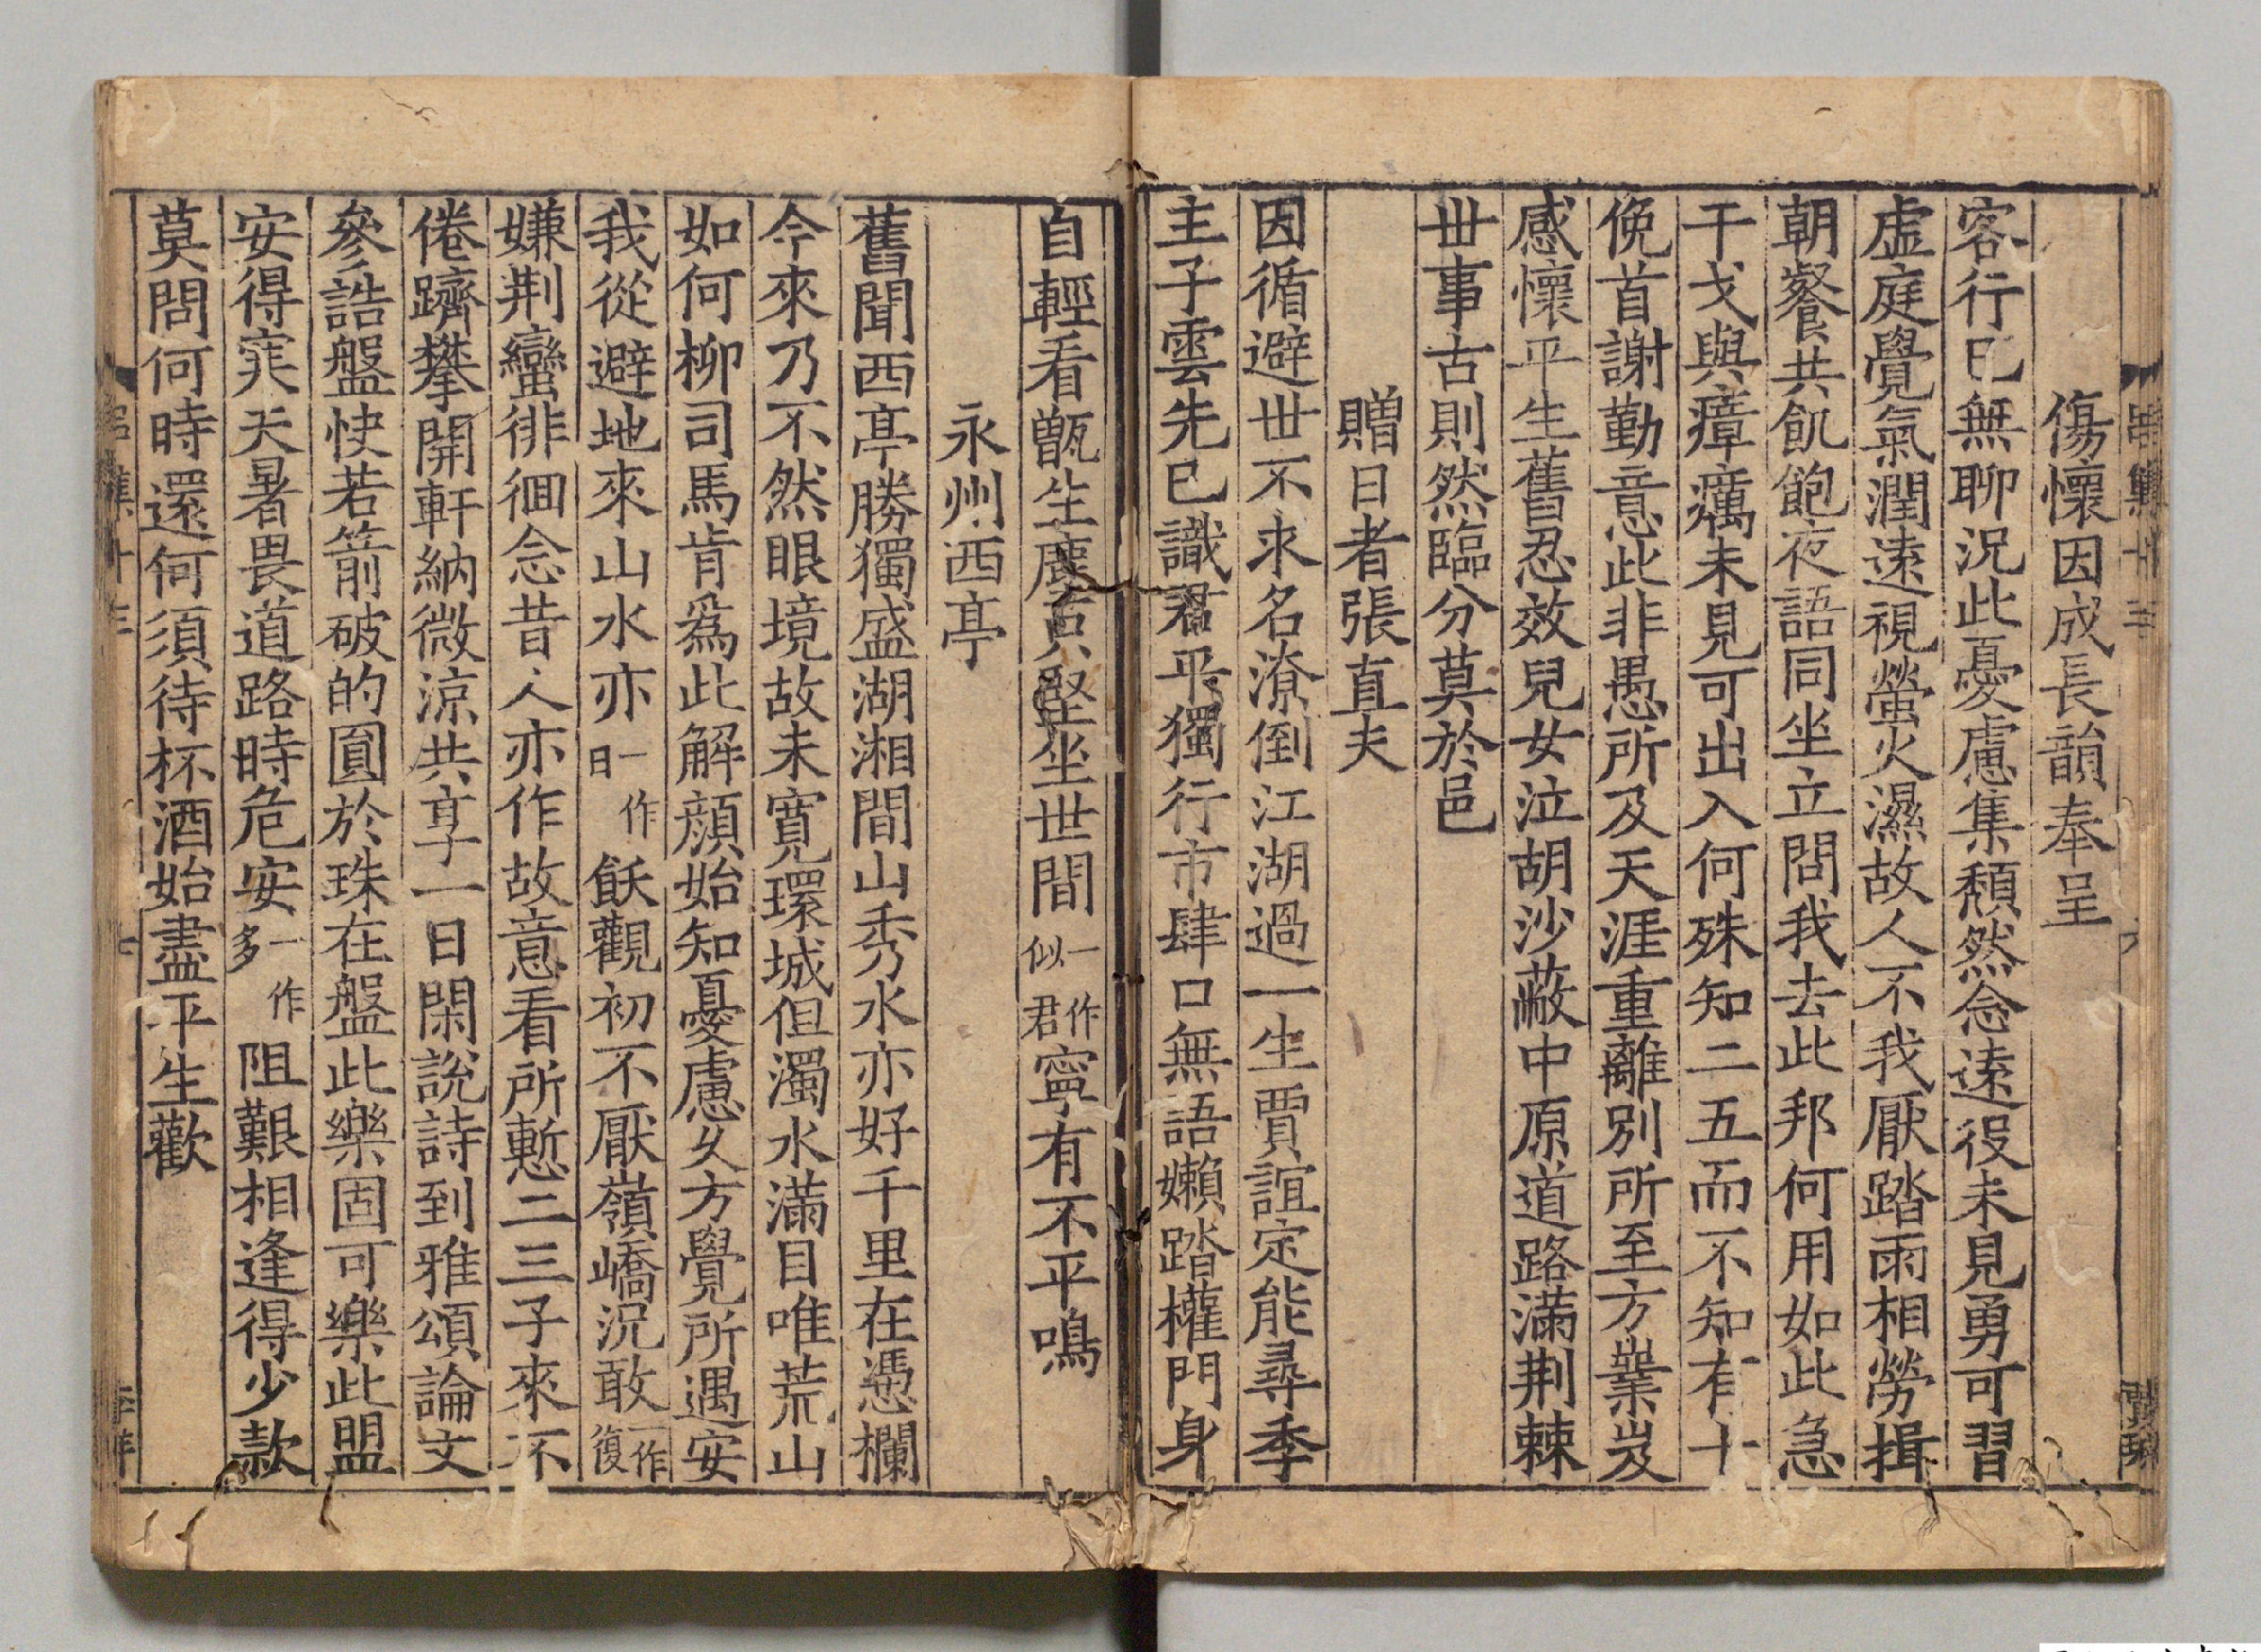 傷懷因成長韻奉呈
客行已無聊況此憂慮集頹然念遠役未見勇可習
虛庭覺氣潤遠視螢火濕故人不我厭踏雨相勞揖
朝餐共飢飽夜語同坐立問我去此邦何用如此急
干戈與瘴癘未見可出入何殊知二五而不知有十
俛首謝勤意此非愚所及天涯重離別所至方業岌
感懷平生舊忍效兒女泣胡沙蔽中原道路滿荆棘
世事古則然臨分莫於邑
贈日者張直夫
因循避世不求名潦倒江湖過一生賈誼定能尋季
主子雲先已識君平獨行市肆口無語嬾踏權門身
自輕看甑生塵只堅坐世間一作似君寧有不平鳴
永州西亭
舊聞西亭勝獨盛湖湘間山秀水亦好千里在憑欄
今來乃不然眼境故未寬環城但濁水滿目唯荒山
如何柳司馬肯爲此解顏始知憂慮久方覺所遇安
我從避地來山水亦一作日飫觀初不厭嶺嶠況敢一作復
嫌荆蠻徘徊念昔人亦作故意看所慙二三子來不
倦躋攀開軒納微涼共享一日閑說詩到雅頌論文
參誥盤快若箭破的圓於珠在盤此樂固可樂此盟
安得寒天暑畏道路時危安一作多阻艱相逢得少款
莫問何時還何須待杯酒始盡平生歡